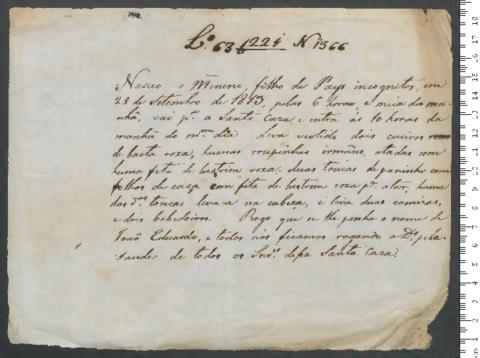 L.º 63 f 224 N. 1366
Nasceo o Menino, filho de Pays incognitos, em
28 de Setembro de 1853, pelas 6 horas, e meia da ma-
nhã, vai p.ª a Santa Caza e entra às 10 horas da
manhã do m.mo dia. Leva vestido dois cueiros
de baeta roxa, humas roupinhas irmans, atadas com
huma fita de lustrim roxa, duas toucas de paninho com
folhos de caça com fita de lustrim roxa p.ª atar, huma
das d.as toucas leva-a na cabeza, e leva duas camizas,
e dois bebedoiros. Rogo que se lhe ponha o nome de
João Eduardo, e todos nós ficamos rogando a D.s pela
saude de todos os Snr.s desta Santa Caza.